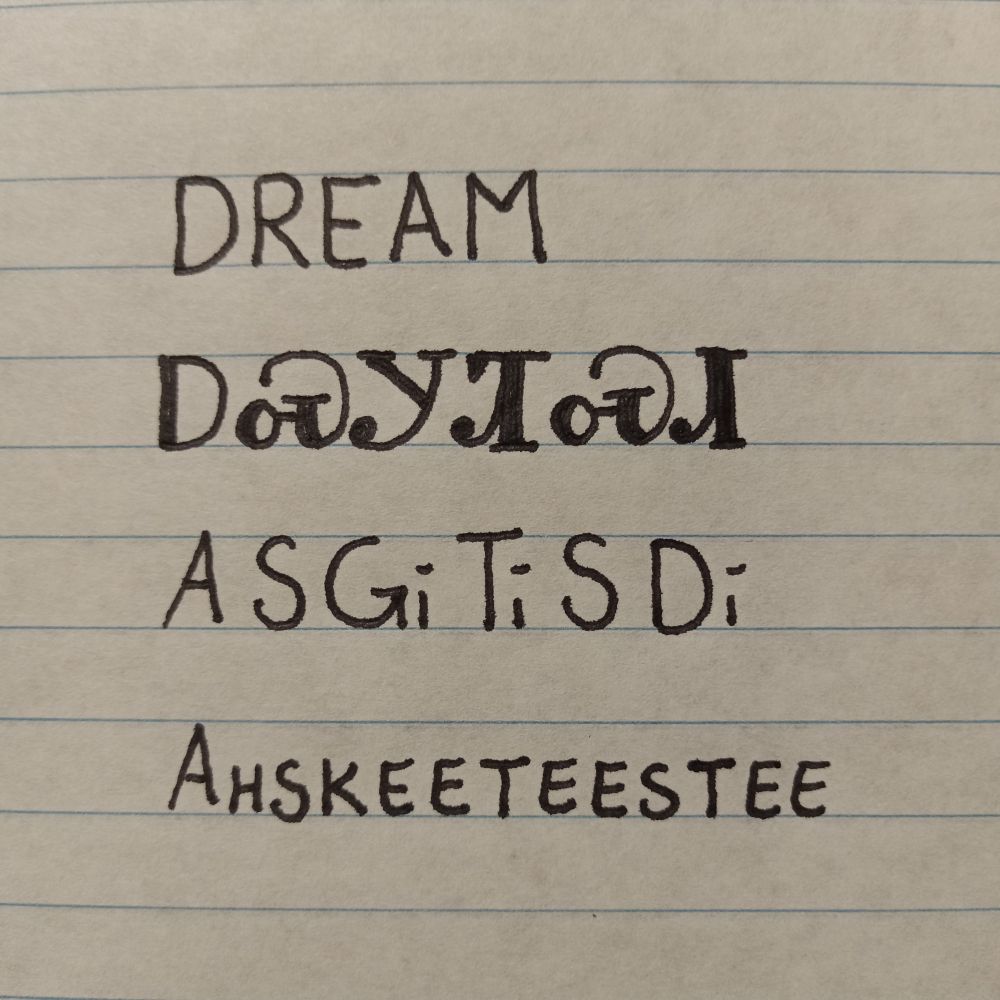 DREAM
ᎠᏍᎩᏘᏍᏗ
A S Gi Ti S Di
AHSKEETEESTEE